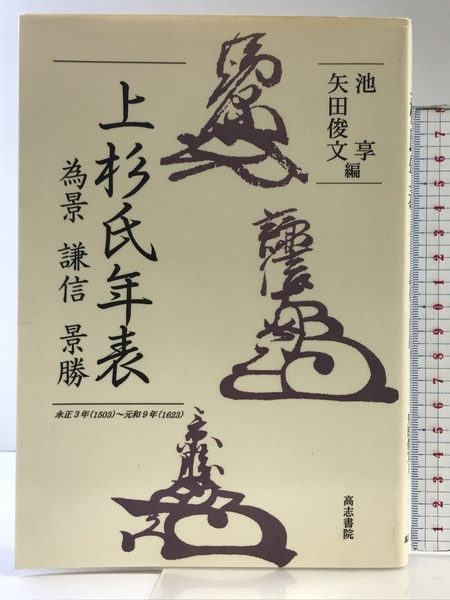 池 享
矢田俊文 編
上杉氏年表
為景 謙信 景勝
永正3年(1503)~元和9年(1623)
高志書院